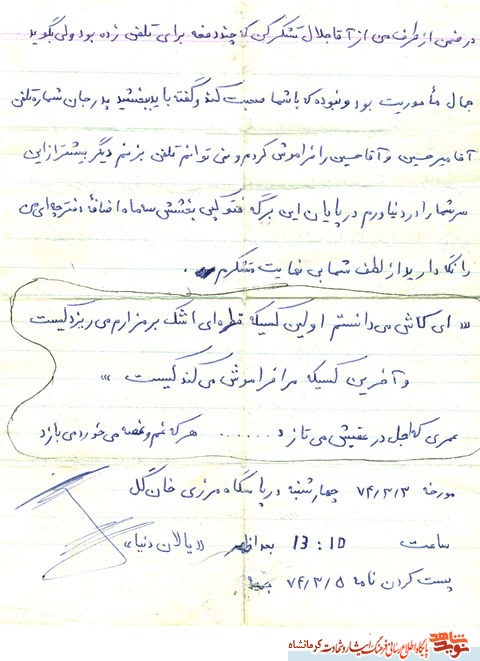 در ضمن از طرف من از آقا جلال تشکر کن که چند دفعه برای تلفن زده بود ولی بگوید
جمال مأموریت بود و نبوده که با شما صحبت کند و گفته باید ببخشید پدر جان شماره تلفن
آقا میر حسین و آقا حسین را فراموش کردم و نمی توانم تلفن بزنم دیگر بیشتر از این
سر شما را درد نیاورم در پایان این برگه فتوکپی بخشش سه ماه اضافهٔ دفترچه ای من
را نگه دارید از لطف شما بی نهایت متشکرم .
«« ای کاش می دانستم اولین کسیکه قطره ای اشک بر مزارم می ریزد کیست
و آخرین کسیکه مرا فراموش می کند کیست »»
عمری که اجل در عقبش می تازد ...... هر که غم و غصه می خورد می بازد
مورخه ۷۴/۳/۳ چهارشنبه در پاسگاه مرزی خان گل
ساعت 13:10 بعد از ظهر «یالان دنیا»
پست کردن نامه ۷۴/۳/۵ جمعه
نوید شاهد پایگاه اطلاع رسانی فرهنگ ایثار و شهادت کرمانشاه